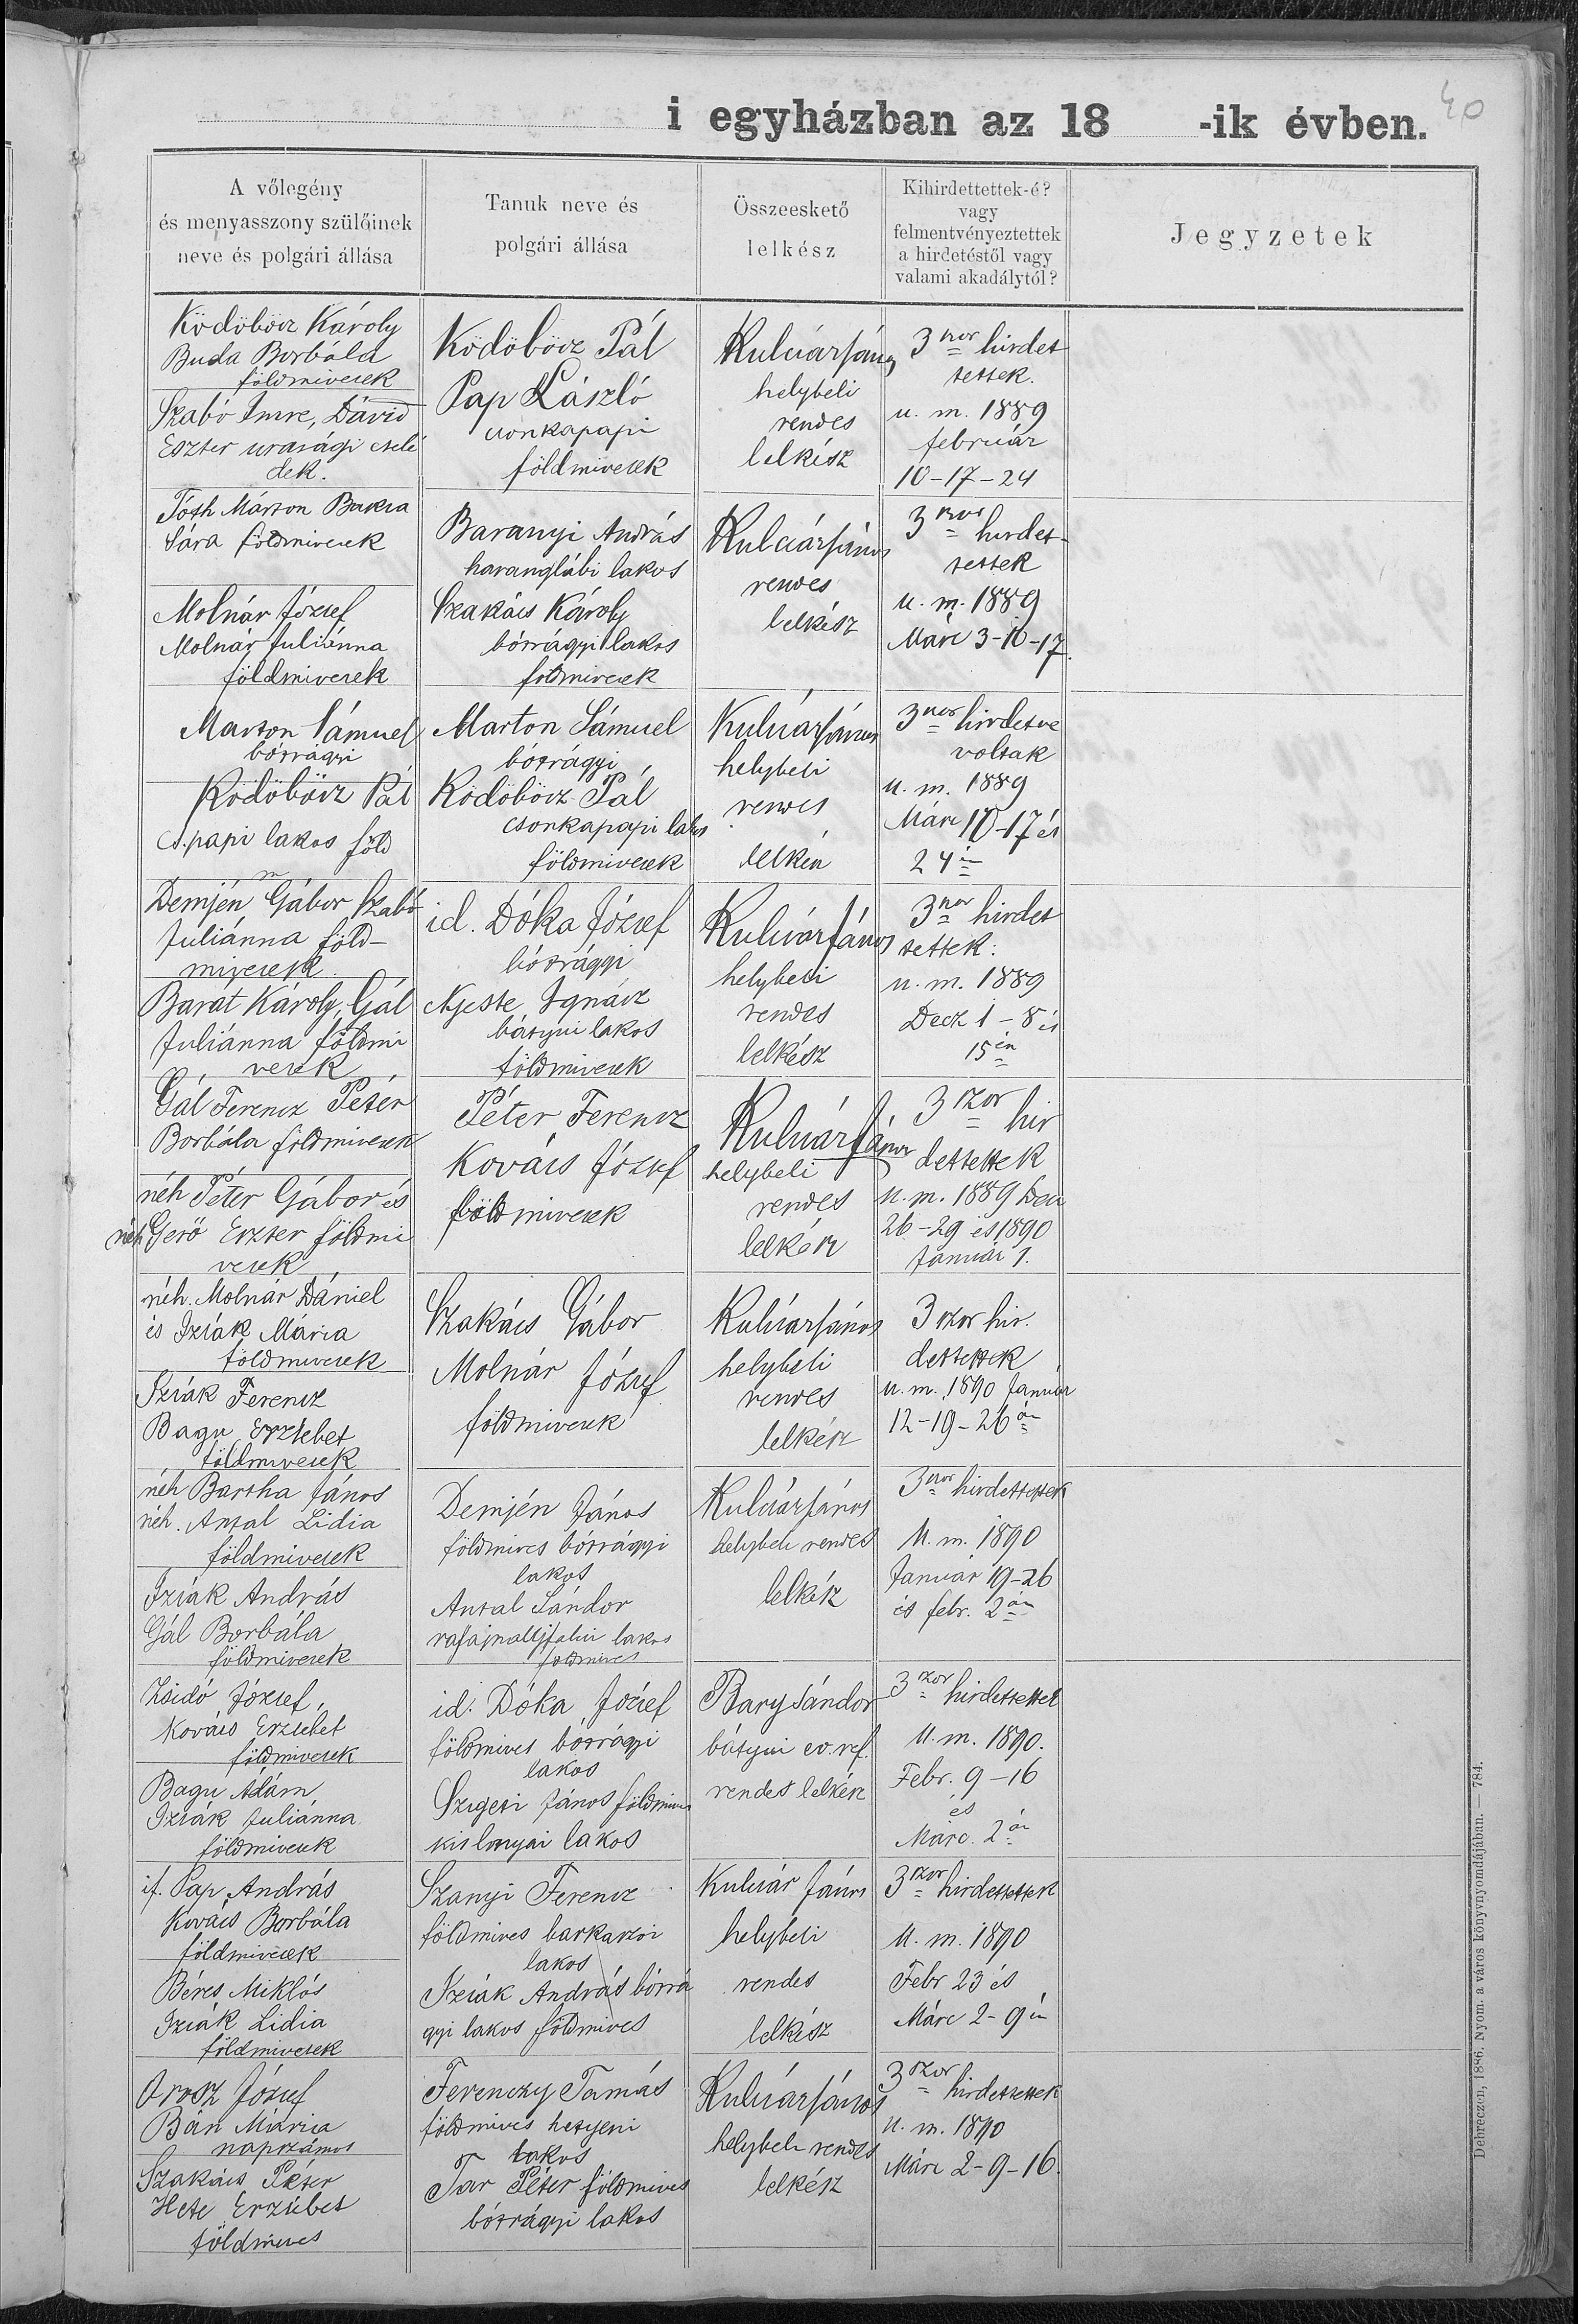 40
i egyházban az 18 -ik évben.
A vőlegény
és menyasszony szülőinek
neve és polgári állása
Tanuk neve és
polgári állása
Összeeskető
lelkész
Kihirdettettek-é?
vagy
felmentvényeztettek
a hirdetéstől vagy
valami akadálytól?
Jegyzetek
Ködöböcz Károly
Buda Borbála
földmivesek
Szabó Imre, Dávid
Eszter urasági cselé
dek.
Ködöböcz Pál
Pap László
csonkapapi
földmivesek
Kulcsár János
helybeli
rendes
lelkész
3szor hirdet
tettek.
u. m. 1889
február
10-17-24
Tóth Márton Bakta
Sára földmivesek
Molnár József
Molnár Juliánna
földmivesek
Baranyi András
haranglábi lakos
Szakács Károly
bótrágyi lakos
földmivesek
Kulcsár János
rendes
lelkész
3szor hirdet-
tettek
u. m. 1889
Márc 3-10-17.
Marton Sámuel
bótrágyi
Ködöböcz Pál
cs.papi lakos föld
m
Marton Sámuel
bótrágyi
Ködöböcz Pál
csonkapapi lakos
földmivesek
Kulcsár János
helybeli
rendes
lelkész
3szor hirdetve
voltak
u. m. 1889
Márc 10-17 és
24 én
Demjén Gábor Szabó
Juliánna föld-
mivesek.
Barat Károly, Gál
Juliánna földmi
vesek
id. Dóka József
bótrágyi
Nyeste Ignácz
bátyui lakos
földmivesek
Kulcsár János
helybeli
rendes
lelkész
3szor hirdet
tettek:
u. m. 1889
Decz 1-8 és
15 én
Gál Ferencz Péter
Borbála földmivesek
néh Péter Gábor és
néh Gerő Eszter földmi
vesek
Péter Ferencz
Kovács József
földmivesek
Kulcsár János
helybeli
rendes
lelkész
3szor hir
dettettek
u. m. 1889 Decz
26-29 és 1890
Január 1.
néh. Molnár Dániel
és Izsák Mária
földmivesek
Izsák Ferencz
Bagu Erzsébet
földmivesek
Szakács Gábor
Molnár József
földmivesek
Kulcsár János
helybeli
rendes
lelkész
3szor hir.
dettettek
u. m. 1890 Január
12-19-26 án
néh Bartha János
néh. Antal Lidia
földmivesek
Izsák András
Gál Borbála
földmivesek
Demjén János
földmives bótrágyi
lakos
Antal Sándor
rafajnaujfalui lakos
földmives
Kulcsár János
helybeli rendes
lelkész
3szor hirdettettek
u. m. 1890
Január 19-26
és febr. 2 án
Zsidó József,
Kovács Erzsébet
földmivesek
Bagu Ádám
Izsák Juliánna
földmivesek
id. Dóka József
földmives bótrágyi
lakos
Szigeti János földmives
kislonyai lakos
Bary Sándor
bátyui ev. ref.
rendes lelkész
3szor hirdettettek
u. m. 1890.
Febr. 9-16
és
Márc. 2 án
if. Pap András
Kovács Borbála
földmivesek
Béres Miklós
Izsák Lidia
földmivesek
Szanyi Ferencz
földmives barkaszoi
lakos
Izsák András bótrá
gyi lakos földmives
Kulcsár János
helybeli
rendes
lelkész
3szor hirdettettek
u. m. 1890
Febr 23 és
Márc 2-9 én
Orosz József
Bán Mária
napszámos
Szakács Péter
Hete Erzsébet
földmives
Ferenczy Tamás
földmives hetyeni
lakos
Tar Péter földmives
bótrágyi lakos
Kulcsár János
helybeli rendes
lelkész
3szor hirdettettek
u. m. 1890
Márc 2-9-16.
Debreczen, 1886. Nyom. a város könyvnyomdájában. — 784.